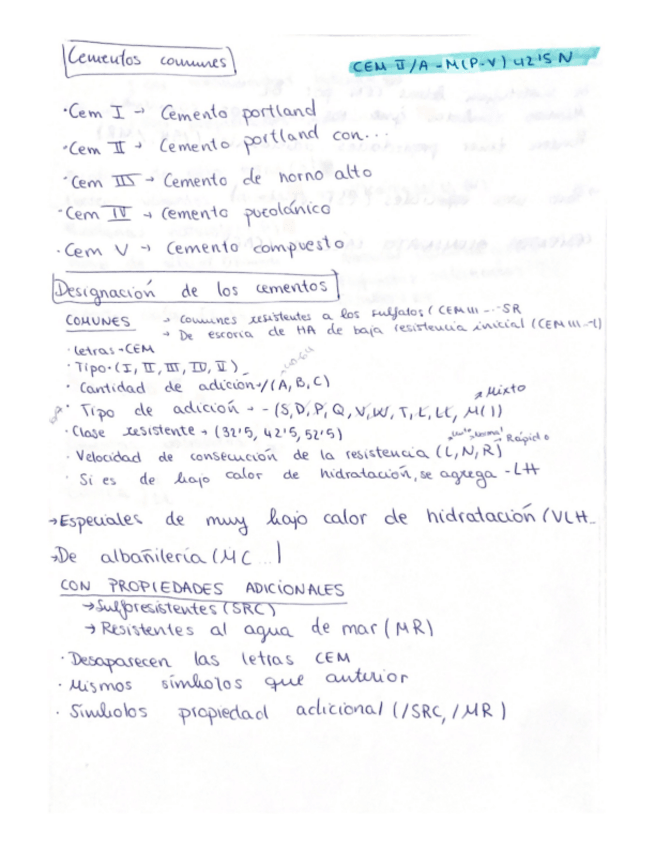 Cementos comunes
CEM II/A-M(P-V) 42'5 N
·Cem I → Cemento portland
·Cem II → Cemento portland con...
·Cem III → Cemento de horno alto
·Cem IV → Cemento pucolánico
·Cem V → Cemento compuesto
Designación de los cementos
COMUNES → comunes resistentes a los sulfatos (CEM III -...-SR
→ De escoria de HA de baja resistencia inicial (CEM III -L)
·Letras → CEM
·Tipo · (I, II, III, IV, V)
· Cantidad de adición → /(A, B, C)
· Tipo de adición → -(S, D, P, Q, V, W, T, L, LL, M( ))
→ Mixto
·Clase resistente → (32'5, 42'5, 52'5)
· Velocidad de consecución de la resistencia (L, N, R)
→ lento → normal → Rápido
· Si es de bajo calor de hidratación, se agrega -LH
→Especiales de muy bajo calor de hidratación (VLH...
→De albañilería (MC ...)
CON PROPIEDADES ADICIONALES
→Sulforesistentes (SRC)
→ Resistentes al agua de mar (MR)
·Desaparecen las letras CEM
· Mismos símbolos que anterior
· Símbolos propiedad adicional (/SRC, /MR)